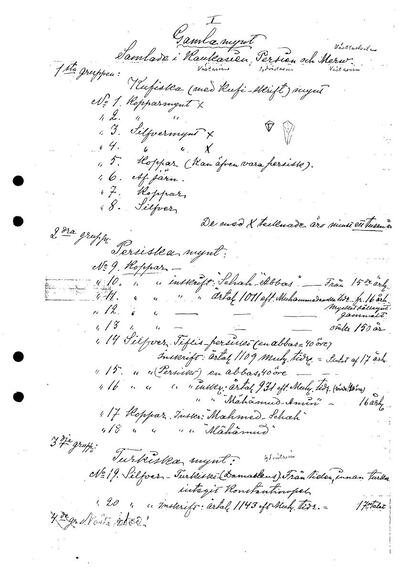 I
Gamla mynt
Samlade i Kaukasien, Persien och Merw.
1sta gruppen:
Kufiska (med kufi-skrift) mynt
No 1. Kopparmynt x
" 2. " "
" 3. Silfvermynt x
" 4. " " x
" 5. Koppar (kan äfven vara persisk).
" 6. Af järn.
" 7. Koppar
" 8. Silfver
De med X tecknade äro minst ett
2dra grupp:
Persiska mynt:
No 9. Koppar —
" 10. " " inskrift: "Schah Abbas" — Från 15de årh.
" 11. " " " årtal 1011 eft. Muhammedanska tidr. p. 16 årh.
" 12 " — — — gammalt
" 13 " — — — omkr 150 år
" 14 Silfver. Tiflis-persiska (en abbas = 40 öre)
Inskrift: årtal 1109 Muh. tidr. = Slutet af 17 årh.
" 15. " (Persien) en abbas, 40 öre —
" 16 " " " inskr. årtal 931 eft Muh. tidr.
" " " " - 16 årh.
" 17 Koppar. Inskr: "Mahmed-Schah"
" 18 " " "Mahämud"
3dje grupp:
Turkiska mynt:
No 19. Silfver - Turkisk (Damaskus) Från tiden, innan turken
intagit Konstantinopel
" 20 " " Inskrift: årtal 1143 eft Muh. tidr. = 17
4de gr.